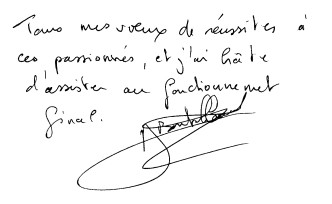 Tous mes voeux de réussites à
ces passionnés, et j'ai hâte
d'assister au fonctionnement
final.